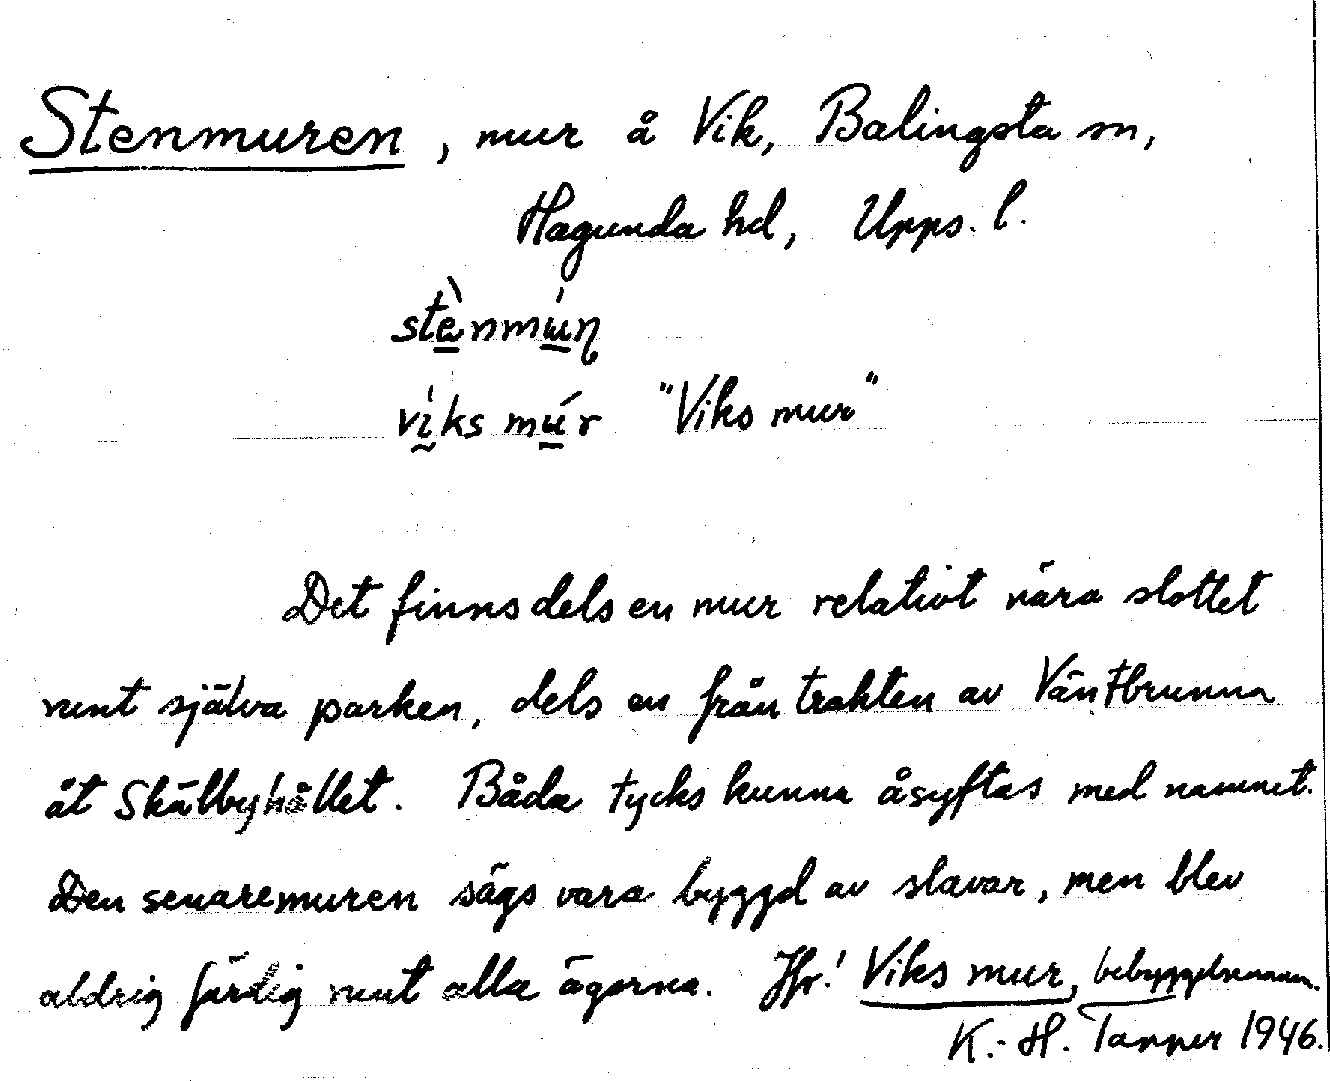 Stenmuren, mur å Vik, Balingsta sn,
Hagunda hd, Upps. l.
stènmúṇ
víks múr "Viks mur"
Det finns dels en mur relativt nära slottet
runt själva parken, dels en från trakten av Väntbrunna
åt Skälbyhållet. Båda tycks kunna åsyftas med namnet.
Den senare muren sägs vara byggd av slavar, men blev
aldrig färdig runt alla ägorna. Jfr! Viks mur, bebyggelsenamn.
K.-H. Tanner 1946.